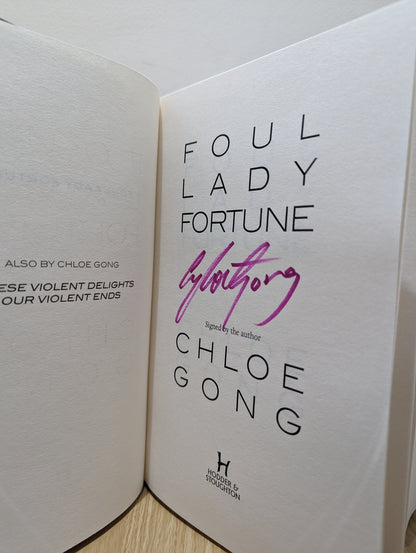 ALSO BY CHLOE GONG
ESE VIOLENT DELIGHTS
OUR VIOLENT ENDS
FOUL
LADY
FORTUNE
Chloe Gong
Signed by the author
CHLOE
GONG
H
HODDER &
STOUGHTON